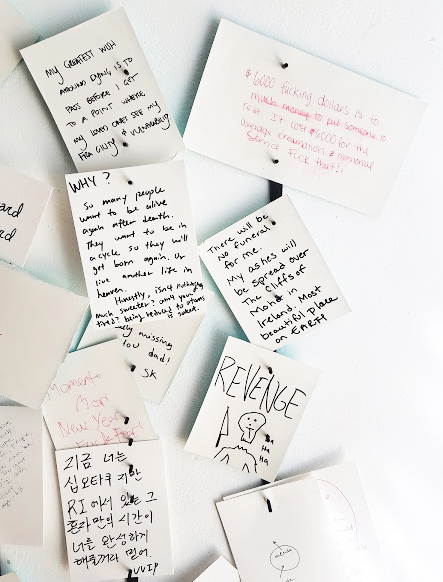 MY GREATEST WISH
AROUND DYING IS TO
PASS BEFORE I GET
TO A POINT WHERE
MY LOVED ONES SEE MY
FRAGILITY & VULNERABILITY
$6000 fucking dollars is to
much money to put someone to
rest It cost $6000 for the
average creamation & memorial
Service Fuck that!!
WHY?
So many people
want to be alive
again after death.
They want to be in
a cycle so they will
get born again. Or
live another life in
heaven.
Honestly, isn't nothingness
much sweeter? Aren't you
tired? being reduced to atoms
is sweet.
There will be
No funeral
for me.
My ashes will
be spread over
The Cliffs of
Moher in
Ireland. Most
beautiful place
on EARTH
ard
d
missing
You dad!
SK
Momento
Mori
New Year
REVENGE
HA
HA
HA
지금 너는
십오타쿠지만
RI에서 있는 그
혼라만의 시간이
너를 완성하게
해줄거라 믿어.
VVIP